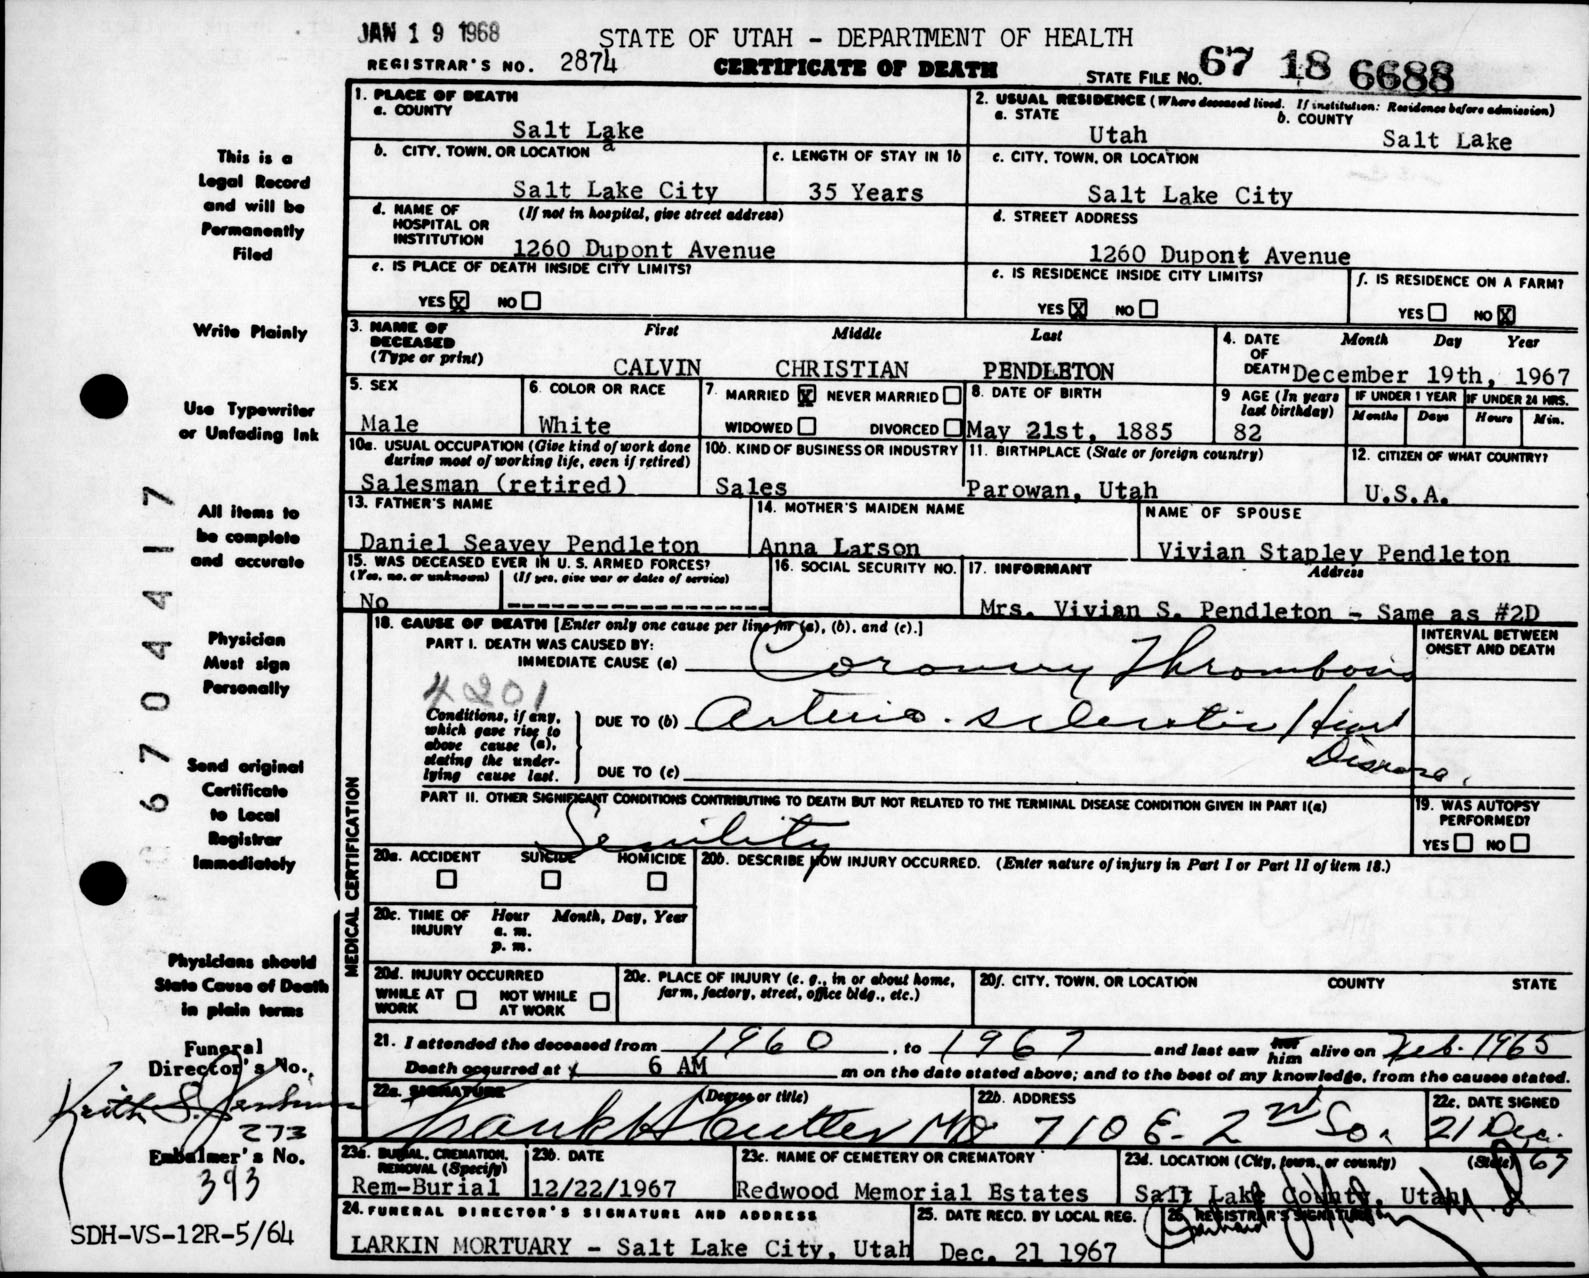 JAN 19 1968
STATE OF UTAH - DEPARTMENT OF HEALTH
REGISTRAR'S NO. 2874
CERTIFICATE OF DEATH
STATE FILE NO. 67 18 6688
1. PLACE OF DEATH
a. COUNTY
Salt Lake
2. USUAL RESIDENCE (Where deceased lived. If institution: Residence before admission)
a. STATE
Utah
b. COUNTY
Salt Lake
b. CITY, TOWN, OR LOCATION
Salt Lake City
c. LENGTH OF STAY IN 1b
35 Years
c. CITY, TOWN, OR LOCATION
Salt Lake City
d. NAME OF HOSPITAL OR INSTITUTION
(If not in hospital, give street address)
1260 Dupont Avenue
d. STREET ADDRESS
1260 Dupont Avenue
e. IS PLACE OF DEATH INSIDE CITY LIMITS?
YES X NO
e. IS RESIDENCE INSIDE CITY LIMITS?
YES X NO
f. IS RESIDENCE ON A FARM?
YES NO X
3. NAME OF DECEASED
(Type or print)
First Middle Last
CALVIN CHRISTIAN PENDLETON
4. DATE OF DEATH
Month Day Year
December 19th, 1967
5. SEX
Male
6. COLOR OR RACE
White
7. MARRIED X NEVER MARRIED
WIDOWED DIVORCED
8. DATE OF BIRTH
May 21st, 1885
9 AGE (In years last birthday)
82
IF UNDER 1 YEAR
Months Days
IF UNDER 24 HRS.
Hours Min.
10a. USUAL OCCUPATION (Give kind of work done during most of working life, even if retired)
Salesman (retired)
10b. KIND OF BUSINESS OR INDUSTRY
Sales
11. BIRTHPLACE (State or foreign country)
Parowan, Utah
12. CITIZEN OF WHAT COUNTRY?
U.S.A.
13. FATHER'S NAME
Daniel Seavey Pendleton
14. MOTHER'S MAIDEN NAME
Anna Larson
NAME OF SPOUSE
Vivian Stapley Pendleton
15. WAS DECEASED EVER IN U. S. ARMED FORCES?
(Yes, no, or unknown) (If yes, give war or dates of service)
No
16. SOCIAL SECURITY NO.
17. INFORMANT
Address
Mrs. Vivian S. Pendleton - Same as #2D
MEDICAL CERTIFICATION
18. CAUSE OF DEATH [Enter only one cause per line for (a), (b), and (c).]
INTERVAL BETWEEN ONSET AND DEATH
PART I. DEATH WAS CAUSED BY:
IMMEDIATE CAUSE (a) Coronary Thrombosis
4201
Conditions, if any, which gave rise to above cause (a), stating the underlying cause last.
DUE TO (b) Arterio-sclerotic Heart
Disease.
DUE TO (c)
PART II. OTHER SIGNIFICANT CONDITIONS CONTRIBUTING TO DEATH BUT NOT RELATED TO THE TERMINAL DISEASE CONDITION GIVEN IN PART I(a)
Senility
19. WAS AUTOPSY PERFORMED?
YES NO
20a. ACCIDENT SUICIDE HOMICIDE
20b. DESCRIBE HOW INJURY OCCURRED. (Enter nature of injury in Part I or Part II of item 18.)
20c. TIME OF INJURY
Hour Month, Day, Year
a. m.
p. m.
20d. INJURY OCCURRED
WHILE AT WORK NOT WHILE AT WORK
20e. PLACE OF INJURY (e. g., in or about home, farm, factory, street, office bldg., etc.)
20f. CITY, TOWN, OR LOCATION COUNTY STATE
21. I attended the deceased from 1960, to 1967 and last saw him alive on Feb. 1965
Death occurred at 6 AM m on the date stated above; and to the best of my knowledge, from the causes stated.
22a. SIGNATURE (Degree or title)
Frank H Cutler MD
22b. ADDRESS
710 E. 2nd So.
22c. DATE SIGNED
21 Dec.
67
23a. BURIAL, CREMATION, REMOVAL (Specify)
Rem-Burial
23b. DATE
12/22/1967
23c. NAME OF CEMETERY OR CREMATORY
Redwood Memorial Estates
23d. LOCATION (City, town, or county) (State)
Salt Lake County, Utah
24. FUNERAL DIRECTOR'S SIGNATURE AND ADDRESS
LARKIN MORTUARY - Salt Lake City, Utah
25. DATE RECD. BY LOCAL REG.
Dec. 21 1967
26. REGISTRAR'S SIGNATURE
This is a
Legal Record
and will be
Permanently
Filed
Write Plainly
Use Typewriter
or Unfading Ink
All items to
be complete
and accurate
Physician
Must sign
Personally
Send original
Certificate
to Local
Registrar
Immediately
Physicians should
State Cause of Death
in plain terms
Funeral
Director's No.
Keith S. Jenkins
273
Embalmer's No.
393
SDH-VS-12R-5/64
67044417